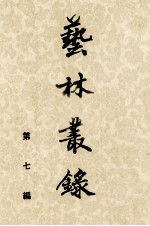 藝林叢錄
第七編